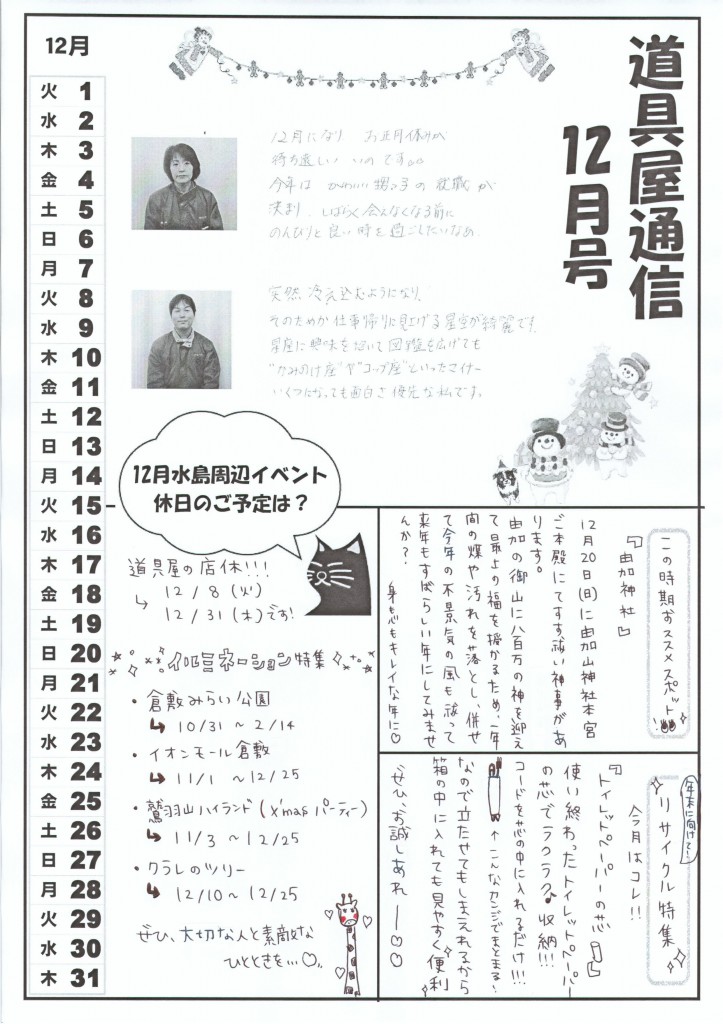 道具屋通信
12月号
12月
火 1
水 2
木 3
金 4
土 5
日 6
月 7
火 8
水 9
木 10
金 11
土 12
日 13
月 14
火 15
水 16
木 17
金 18
土 19
日 20
月 21
火 22
水 23
木 24
金 25
土 26
日 27
月 28
火 29
水 30
木 31
12月になり お正月休みが
待ち遠しい いのです。。
今年は かわいい甥っ子の就職が
決まり、しばらく会えなくなる前に
のんびりと良い時を過ごしたいなぁ。
突然、冷え込むようになり、
そのためか仕事帰りに見上げる星空が綺麗です。
星座に興味を抱いて図鑑を広げても
"かみのけ座"や"コップ座"といったマイナー
いくつになっても面白さ優先な私です。
12月水島周辺イベント
休日のご予定は?
道具屋の店休!!!
↳ 12/8(火)
12/31(木)です!
イルミネーション特集
・倉敷みらい公園
↳ 10/31〜2/14
・イオンモール倉敷
↳ 11/1 〜12/25
・鷲羽山ハイランド(x'masパーティー)
↳ 11/3 〜12/25
・クラレのツリー
↳ 12/10〜12/25
ぜひ、大切な人と素敵な
ひとときを…♡。
この時期おススメスポット
『由加神社』
12月20日(日)に由加山神社本宮
ご本殿にてすす祓い神事があ
ります。
由加の御山に八百万の神を迎え
て最上の福を授かるため、一年
間の煤や汚れを落とし、併せ
て今年の不景気の風も祓って
来年もすばらしい年にしてみませ
んか?
身も心もキレイな年に♡
年末に向けて!
リサイクル特集
今月はコレ!!
『トイレットペーパーの芯』
使い終わったトイレットペーパー
の芯でラクラク♪収納!!!
コードを芯の中に入れるだけ!!!
↑こんなカンジでまとまる!
なので立たせてもしまえれるから
箱の中に入れても見やすく便利
ぜひ、お試しあれー♡♡